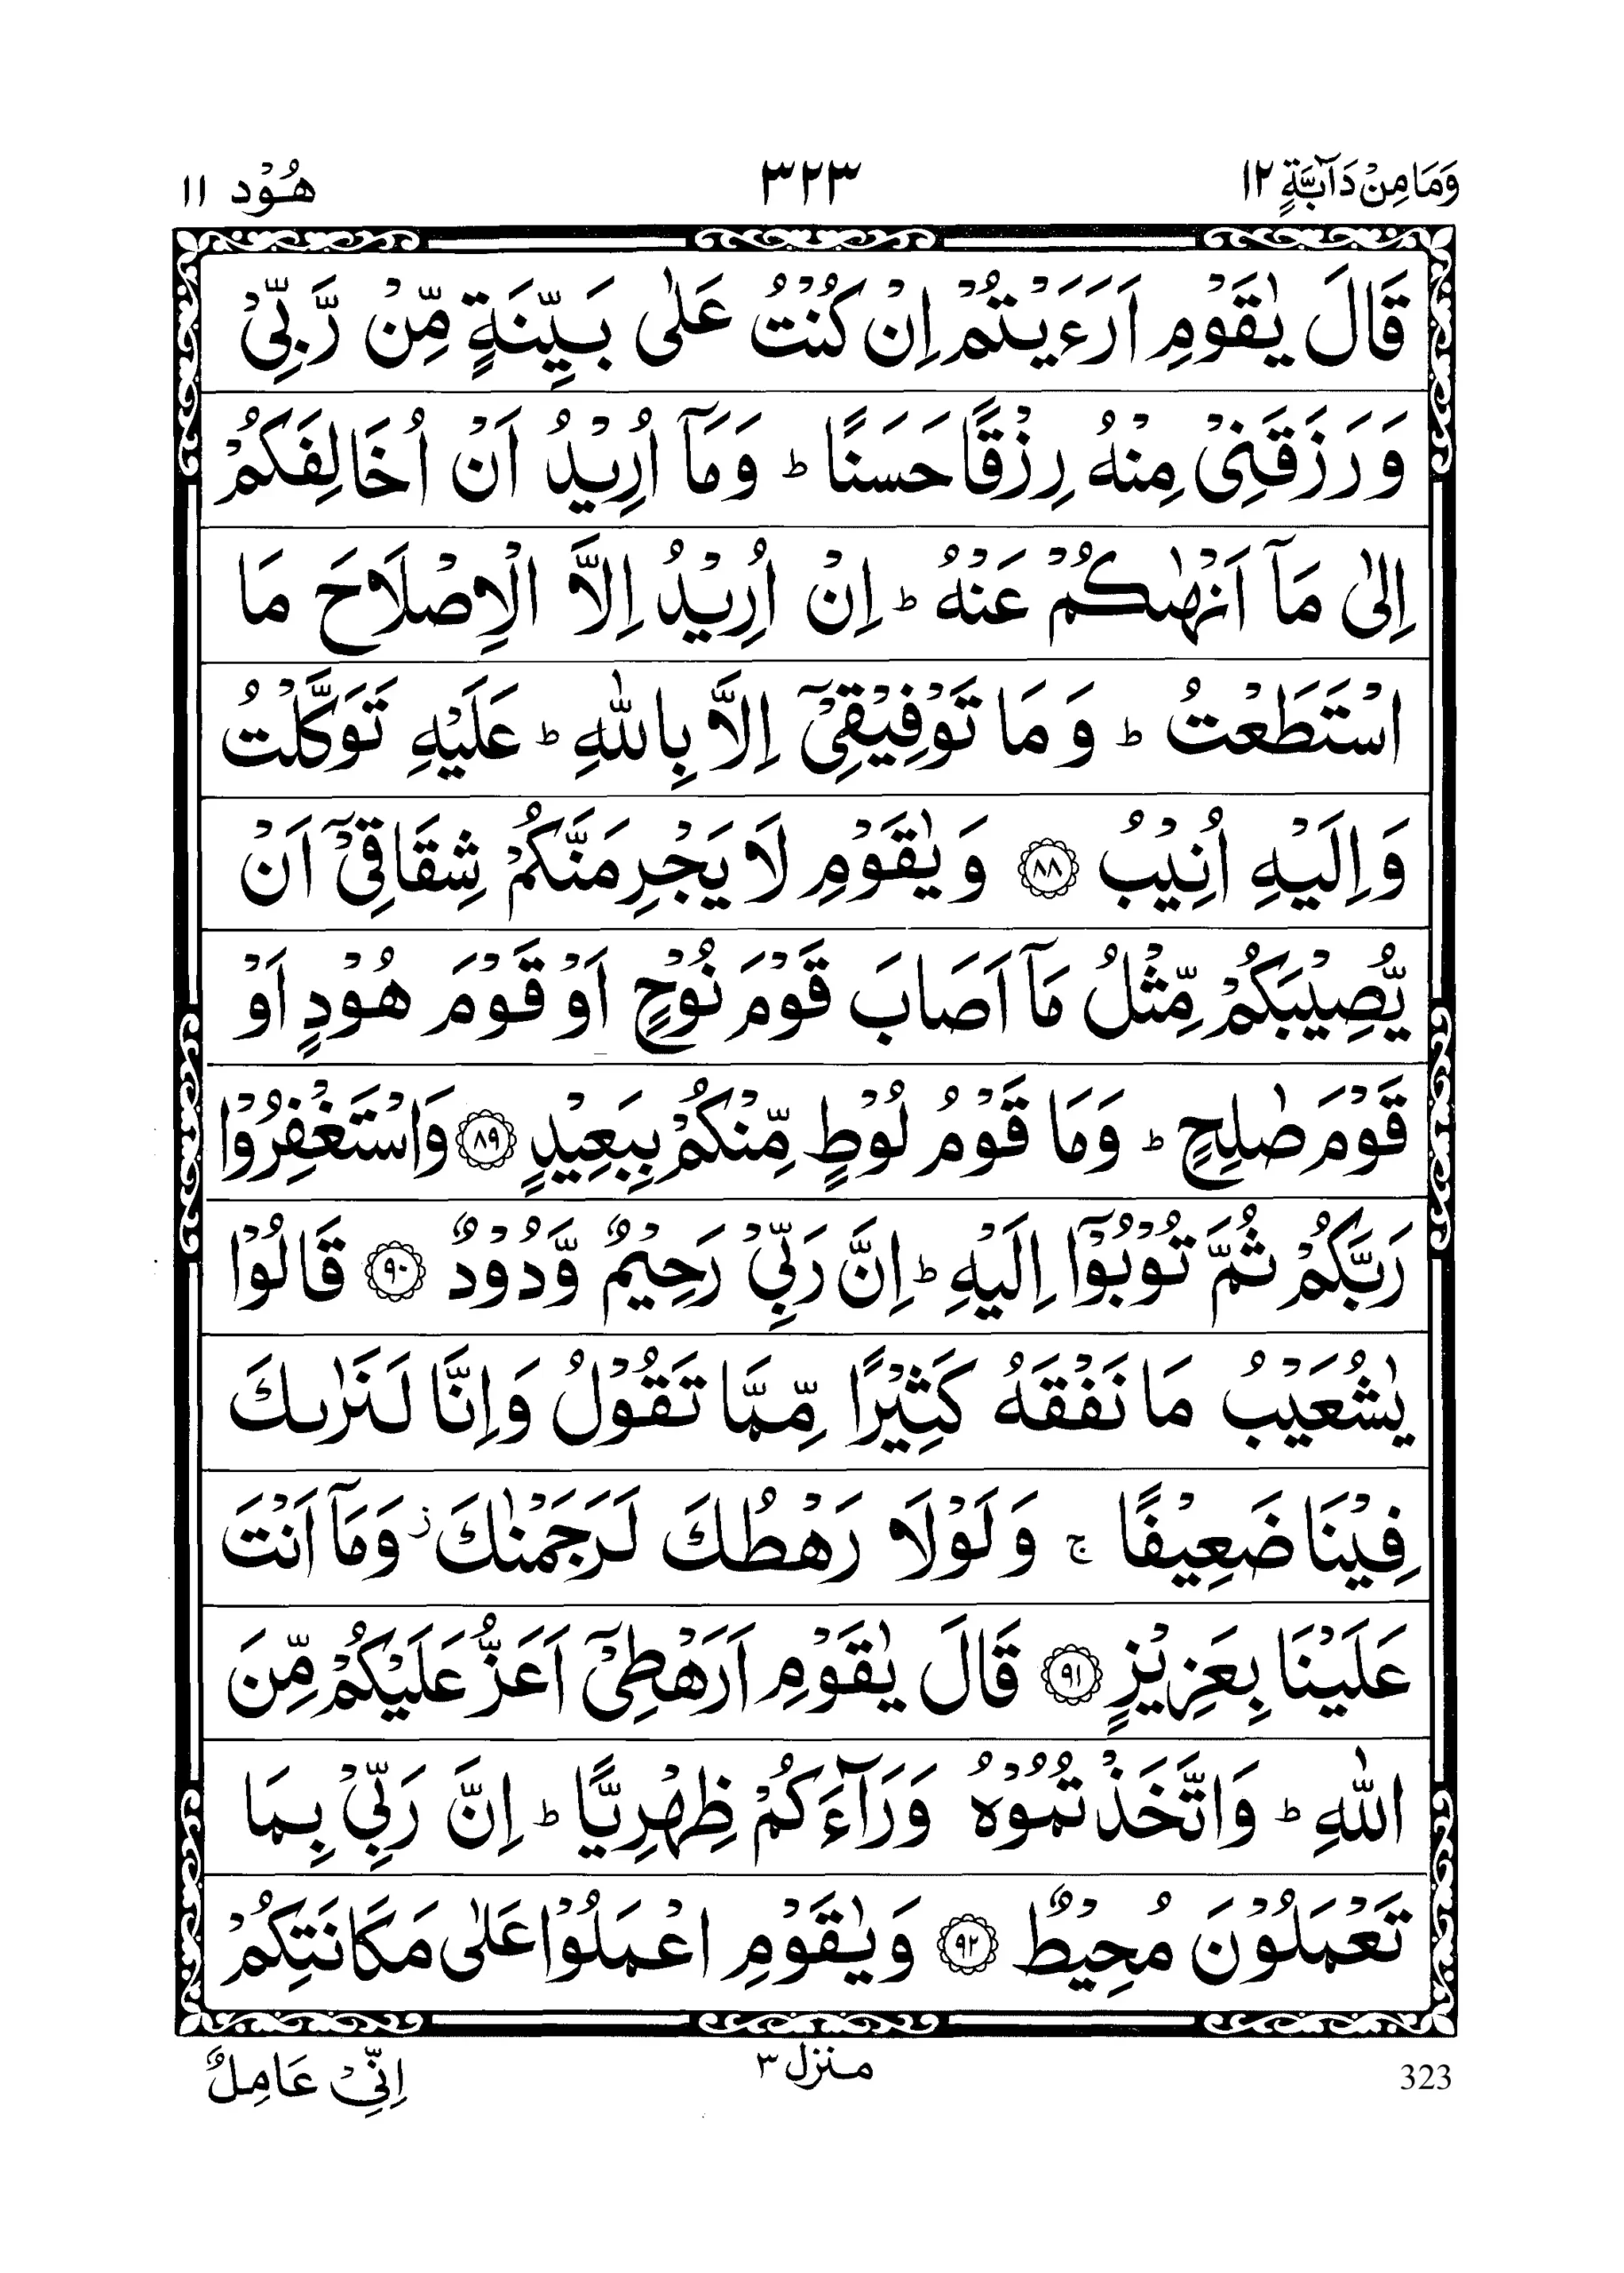 وَمَا مِنْ دَآبَّةٍ ١٢ ٣٢٣ هُوْد ١١
قَالَ يٰقَوْمِ اَرَءَيْتُمْ اِنْ كُنْتُ عَلٰى بَيِّنَةٍ مِّنْ رَّبِّىْ
وَرَزَقَنِىْ مِنْهُ رِزْقًا حَسَنًا ؕ وَمَاۤ اُرِيْدُ اَنْ اُخَالِفَكُمْ
اِلٰى مَاۤ اَنْهٰٮكُمْ عَنْهُ ؕ اِنْ اُرِيْدُ اِلَّا الْاِصْلَاحَ مَا
اسْتَطَعْتُ ؕ وَمَا تَوْفِيْقِىْۤ اِلَّا بِاللّٰهِ ؕ عَلَيْهِ تَوَكَّلْتُ
وَاِلَيْهِ اُنِيْبُ ﴿٨٨﴾ وَيٰقَوْمِ لَا يَجْرِمَنَّكُمْ شِقَاقِىْۤ اَنْ
يُّصِيْبَكُمْ مِّثْلُ مَاۤ اَصَابَ قَوْمَ نُوْحٍ اَوْ قَوْمَ هُوْدٍ اَوْ
قَوْمَ صٰلِحٍ ؕ وَمَا قَوْمُ لُوْطٍ مِّنْكُمْ بِبَعِيْدٍ ﴿٨٩﴾ وَاسْتَغْفِرُوْا
رَبَّكُمْ ثُمَّ تُوْبُوْۤا اِلَيْهِ ؕ اِنَّ رَبِّىْ رَحِيْمٌ وَّدُوْدٌ ﴿٩٠﴾ قَالُوْا
يٰشُعَيْبُ مَا نَفْقَهُ كَثِيْرًا مِّمَّا تَقُوْلُ وَاِنَّا لَنَرٰٮكَ
فِيْنَا ضَعِيْفًا ۚ وَلَوْلَا رَهْطُكَ لَرَجَمْنٰكَ ز وَمَاۤ اَنْتَ
عَلَيْنَا بِعَزِيْزٍ ﴿٩١﴾ قَالَ يٰقَوْمِ اَرَهْطِىْۤ اَعَزُّ عَلَيْكُمْ مِّنَ
اللّٰهِ ؕ وَاتَّخَذْتُمُوْهُ وَرَآءَكُمْ ظِهْرِيًّا ؕ اِنَّ رَبِّىْ بِمَا
تَعْمَلُوْنَ مُحِيْطٌ ﴿٩٢﴾ وَيٰقَوْمِ اعْمَلُوْا عَلٰى مَكَانَتِكُمْ
323 منزل ٣ اِنِّىْ عَامِلٌ